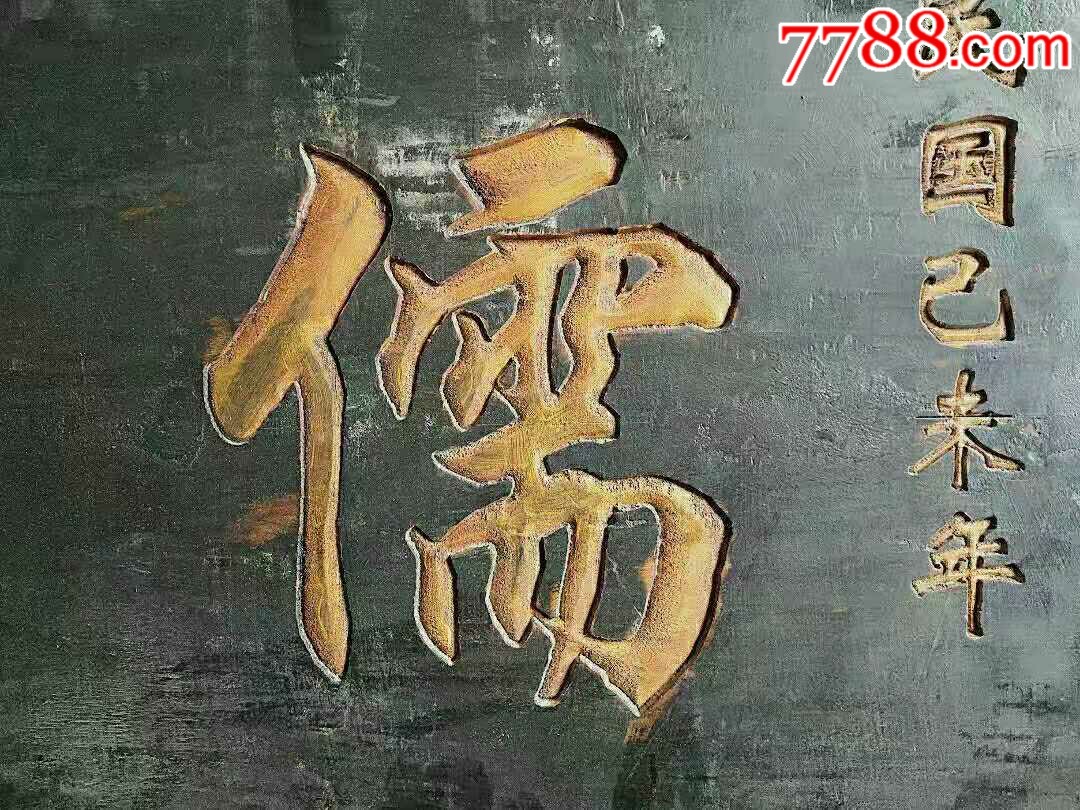 7788.com
国己未年
儒